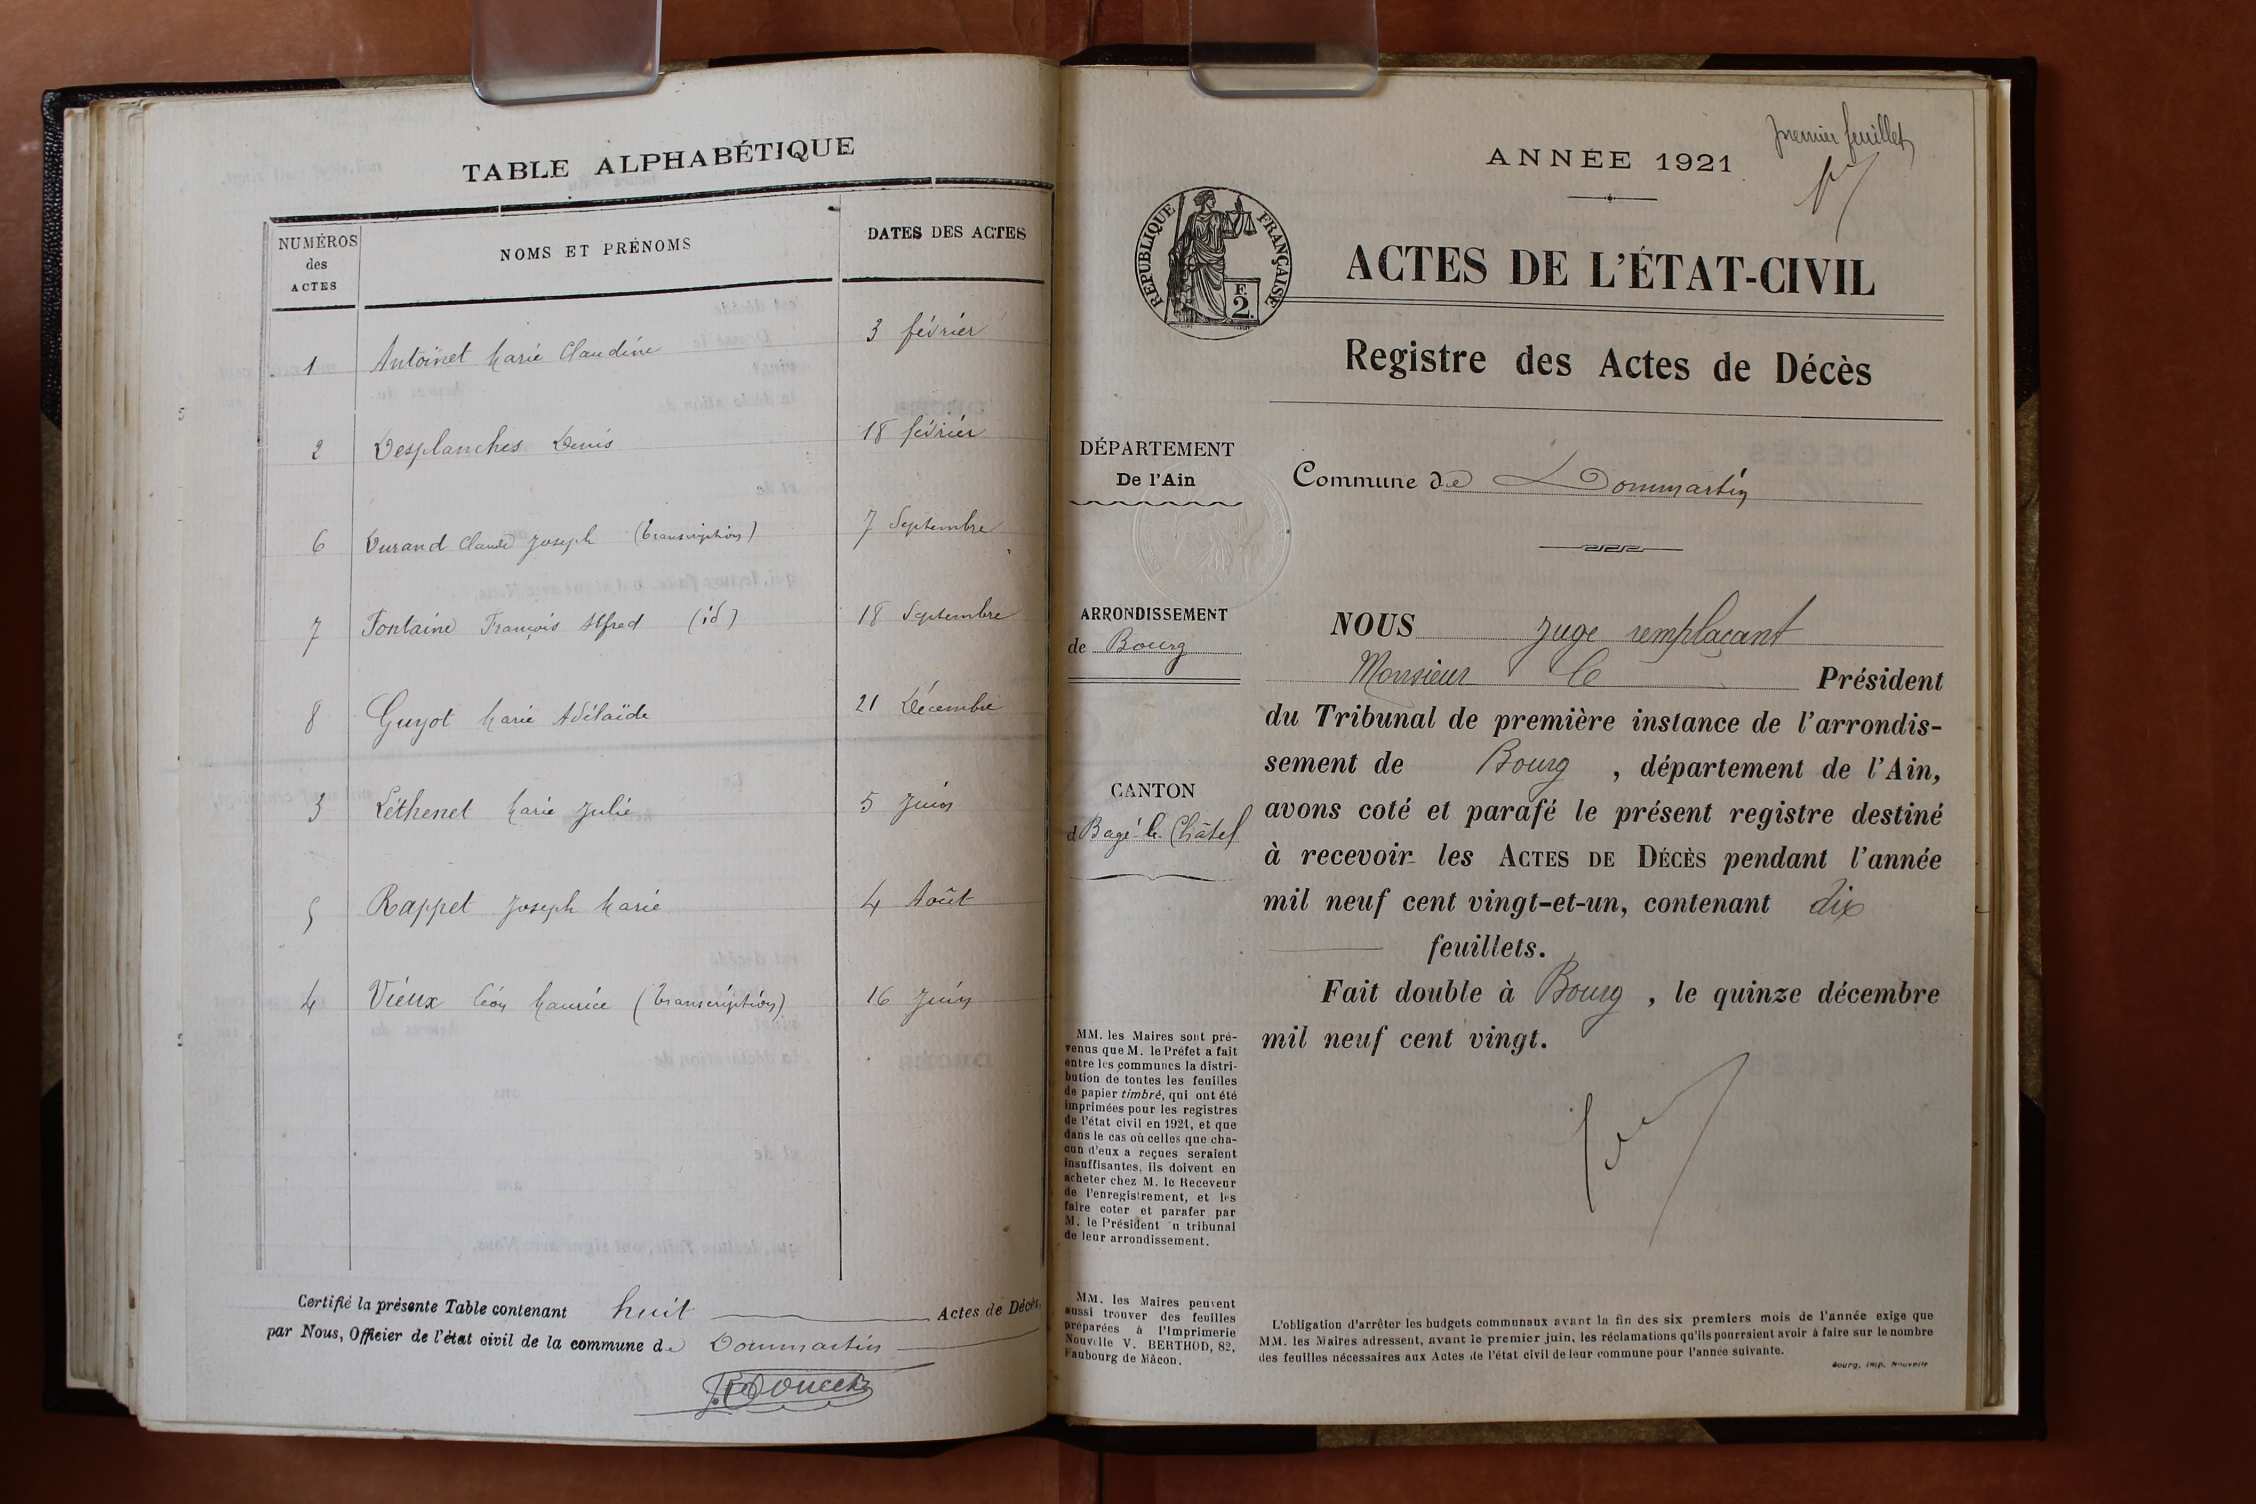 TABLE ALPHABÉTIQUE
NUMÉROS
des
ACTES
NOMS ET PRÉNOMS
DATES DES ACTES
1 Antoinet Marie Claudine 3 février
2 Desplanches Denis 18 février
6 Durand Claude Joseph (transcription) 7 Septembre
7 Fontaine François Alfred (id) 18 Septembre
8 Guyot Marie Adélaïde 21 Décembre
3 Léthenet Marie Julie 5 Juin
5 Rappet Joseph Marie 4 Août
4 Vieux Léon Maurice (transcription) 16 Juin
Certifié la présente Table contenant huit Actes de Décès,
par Nous, Officier de l'état civil de la commune de Dommartin
premier feuillet
ANNÉE 1921
RÉPUBLIQUE FRANÇAISE
F.
2.
ACTES DE L'ÉTAT-CIVIL
Registre des Actes de Décès
DÉPARTEMENT
De l'Ain
Commune de Dommartin
ARRONDISSEMENT
de Bourg
CANTON
d Bagé-le-Châtel
MM. les Maires sont pré-
venus que M. le Préfet a fait
entre les communes la distri-
bution de toutes les feuilles
de papier timbré, qui ont été
imprimées pour les registres
de l'état civil en 1921, et que
dans le cas où celles que cha-
cun d'eux a reçues seraient
insuffisantes, ils doivent en
acheter chez M. le Receveur
de l'enregistrement, et les
faire coter et parafer par
M. le Président u tribunal
de leur arrondissement.
MM. les Maires peuvent
aussi trouver des feuilles
préparées à l'Imprimerie
Nouvelle V. BERTHOD, 82,
Faubourg de Mâcon.
NOUS juge remplaçant
Monsieur le Président
du Tribunal de première instance de l'arrondis-
sement de Bourg , département de l'Ain,
avons coté et parafé le présent registre destiné
à recevoir les ACTES DE DÉCÈS pendant l'année
mil neuf cent vingt-et-un, contenant dix
feuillets.
Fait double à Bourg , le quinze décembre
mil neuf cent vingt.
L'obligation d'arrêter les budgets communaux avant la fin des six premiers mois de l'année exige que
MM. les Maires adressent, avant le premier juin, les réclamations qu'ils pourraient avoir à faire sur le nombre
des feuilles nécessaires aux Actes de l'état civil de leur commune pour l'année suivante.
Bourg, imp. Nouvelle